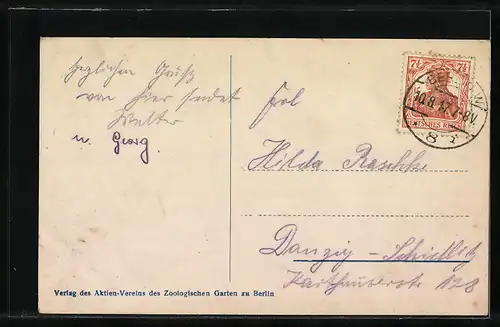 Herzlichen Gruß
von hier sendet
Walter
u. Georg.
Frl
Hilda Raschke
Danzig – Schidlitz
Karthäuserstr 128
7½ 7½
DEUTSCHES REICH
BERLIN
10.8.17.7-8V
Verlag des Aktien-Vereins des Zoologischen Garten zu Berlin